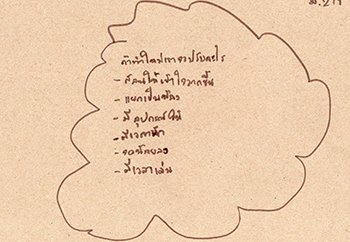 ม.2/1
ถ้าทำใหม่เราจะปรับอะไร
- สอนให้เข้าใจมากขึ้น
- แยกเป็นห้อง
- มีอุปกรณ์ให้
- มีเวลาพัก
- จดน้อยลง
- มีเวลาเล่น